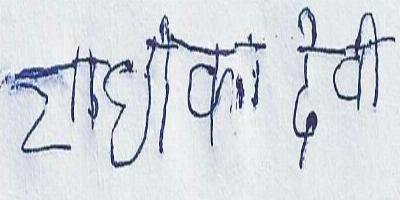 राधीका देवी